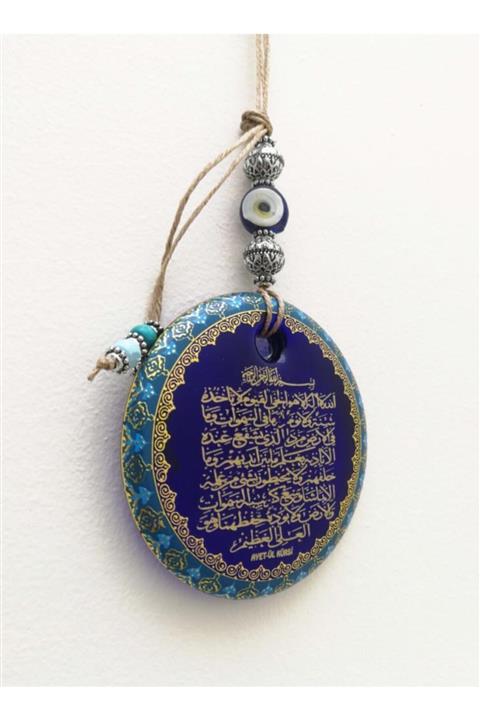 بسم الله الرحمن الرحيم
الله لا اله الا هو الحي القيوم لا تأخذه
سنة ولا نوم له ما في السموات وما
في الارض من ذا الذي يشفع عنده
الا باذنه يعلم ما بين ايديهم وما
خلفهم ولا يحيطون بشئ من علمه
الا بما شاء وسع كرسيه السموات
والارض ولا يؤده حفظهما وهو
العلي العظيم
AYET-ÜL KÜRSİ